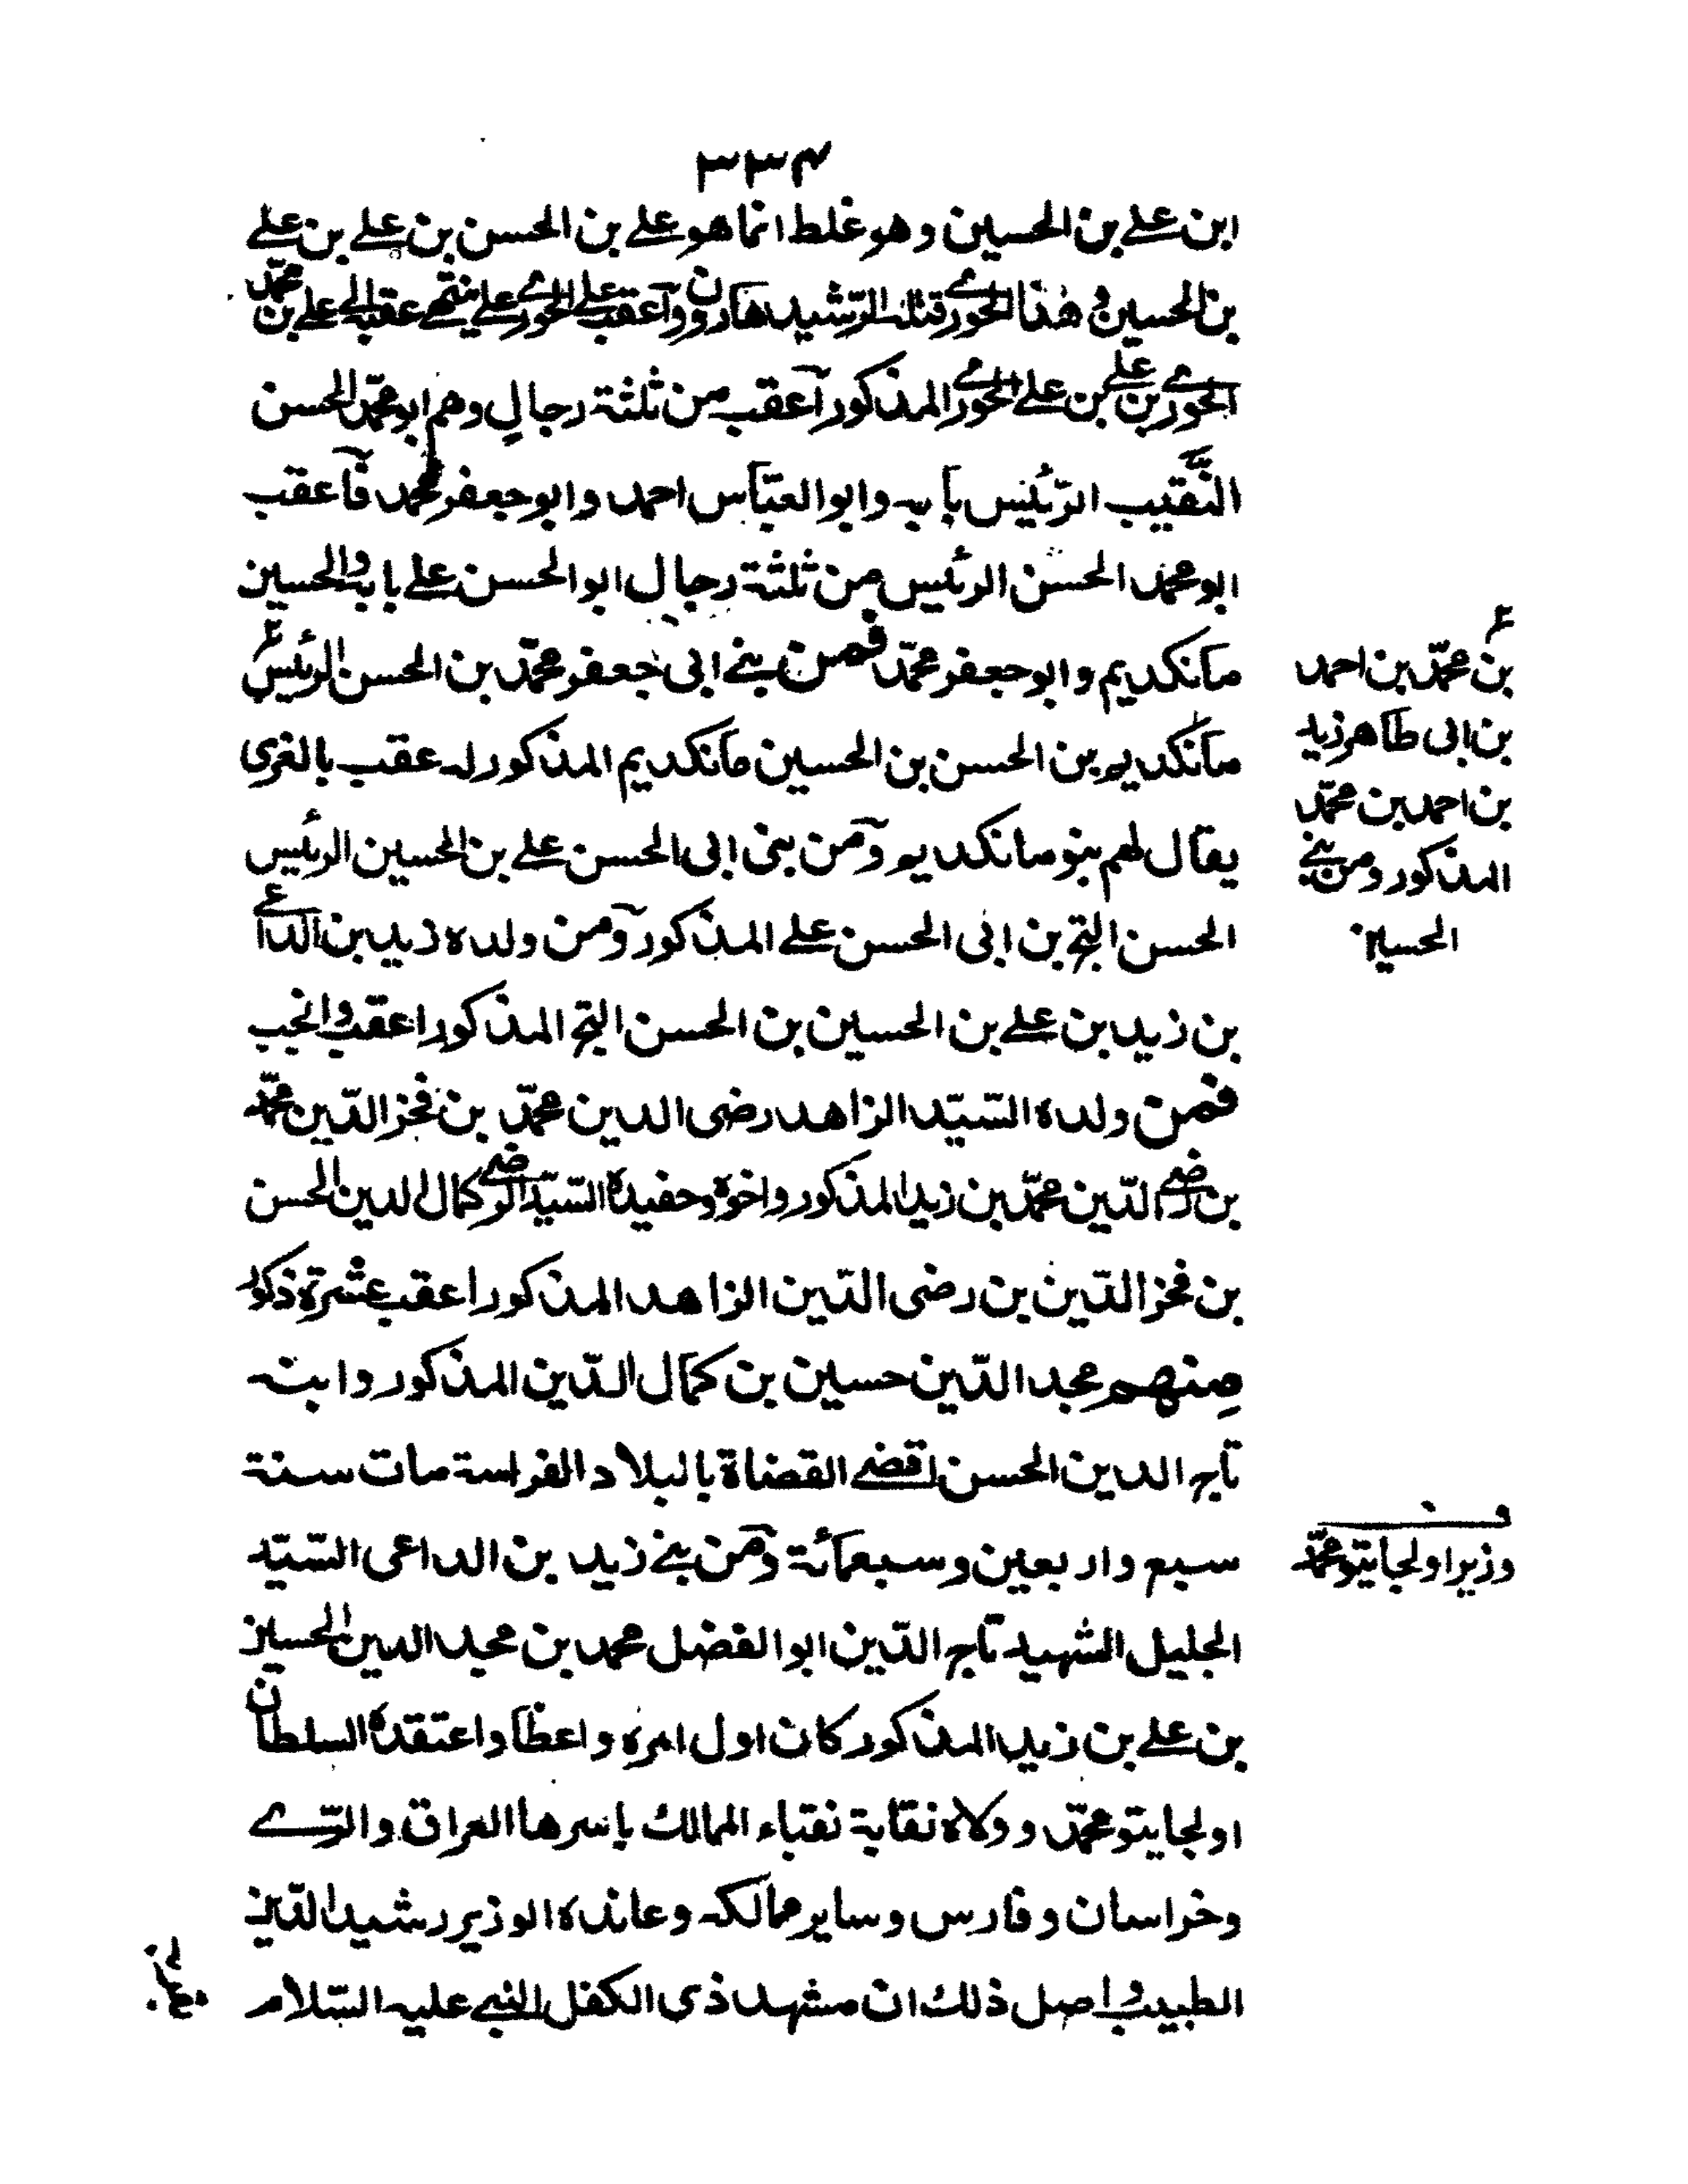 ٣٣٤
ابن علے بن الحسين وهو غلط انما هو علے بن الحسن بن علے بن علے
بن الحسين و هذا الحورے قتله الرّشيد هارون وآعقب علے الحورے علے ينتهے عقبه الے علے بن محمّد
الحورے بن علے بن علے الحورے المذكور آعقب من ثلثة رجالٍ وهم ابو محمّد الحسن
النّقيب الرّئيس بآبه وابو العبّاس احمد وابو جعفر محمد فآعقب
ابو محمد الحسن الرئيس من ثلثة رجال ابو الحسن علے بابه والحسين
مانكديم وابو جعفر محمّد فمن بنے ابى جعفر محمّد بن الحسن الرئيس
مانكديم بن الحسن بن الحسين مانكديم المذكور له عقب بالغرى
يقال لهم بنو مانكديم وآمن بنى ابى الحسن علے بن الحسين الرئيس
الحسن التج بن ابى الحسن علے المذكور وآمن ولده زيد بن الداعے
بن زيد بن علے بن الحسين بن الحسن التج المذكور اعقب وانجب
فمن ولده السّيّد الزاهد رضى الدين محمّد بن فخر الدّين محمّد
بن رضے الدّين محمّد بن زيد المذكور واخوة وحفيده السّيّد الرضے كمال الدين الحسن
بن فخر الدّين بن رضى الدّين الزاهد المذكور اعقب عشرة ذكور
منهم مجد الدّين حسين بن كمال الدّين المذكور وابنه
تاج الدين الحسن اقضے القضاة بالبلاد الفراسة مات سنة
سبع واربعين وسبعمائة ومن بنے زيد بن الداعى السّيّد
الجليل الشهيد تاج الدّين ابو الفضل محمد بن مجد الدين الحسين
بن علے بن زيد المذكور كان اول امره واعظاً واعتقده السلطان
اولجايتو محمّد وولاه نقابة نقباء الممالك باسرها العراق والرّے
وخراسان وفارس وساير ممالكه وعانده الوزير رشيد الدّين
الطبيب واصل ذلك ان مشهد ذى الكفل النبے عليه السّلام
بن محمّد بن احمد
بن ابى طاهر زيد
بن احمد بن محمّد
المذكور ومن بنے
الحسين
وزير اولجايتو محمّد